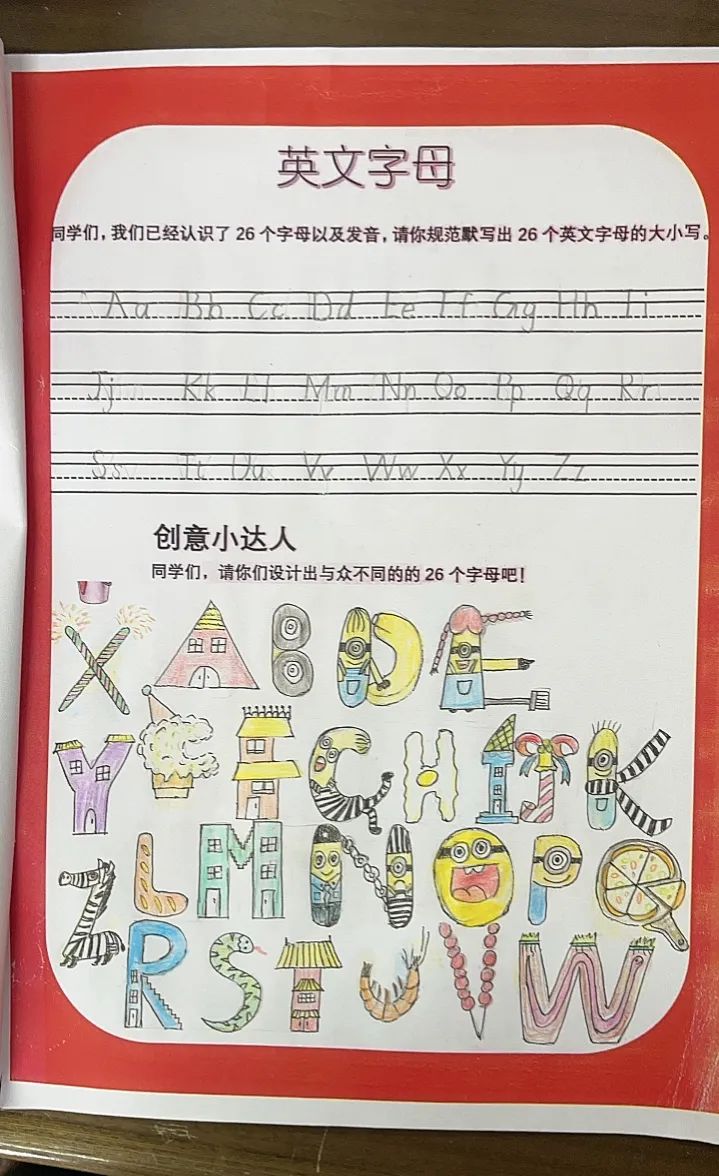 英文字母
同学们，我们已经认识了 26 个字母以及发音，请你规范默写出 26 个英文字母的大小写。
Aa Bb Cc Dd Ee Ff Gg Hh Ii
Jj Kk Ll Mm Nn Oo Pp Qq Rr
Ss Tt Uu Vv Ww Xx Yy Zz
创意小达人
同学们，请你们设计出与众不同的的 26 个字母吧！
X A B D E
Y C F G H I J K
Z L M N O P Q
R S T U V W